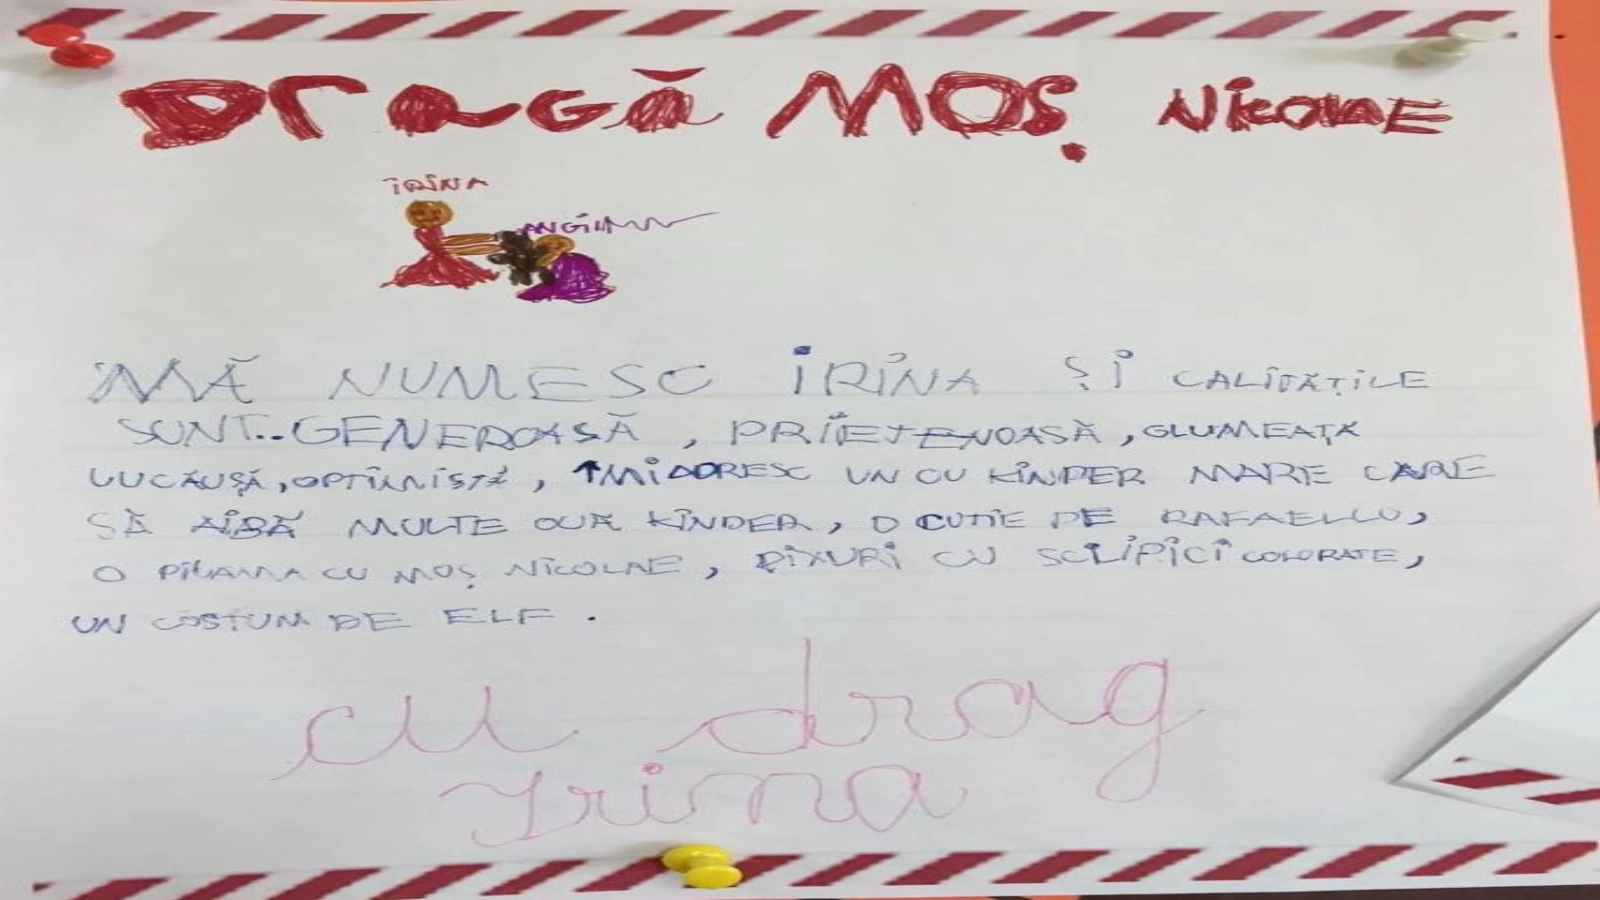 DRAGĂ MOȘ NICOLAE
IRINA
MĂ NUMESC IRINA ȘI CALITĂȚILE
SUNT..GENEROASĂ, PRIETENOASĂ, GLUMEAȚĂ
LUCĂUȘĂ, OPTIMISTĂ, ↑MI DORESC UN OU KINDER MARE CARE
SĂ AIBĂ MULTE OUĂ KINDER, O CUTIE DE RAFAELLO,
O PIJAMA CU MOȘ NICOLAE, PIXURI CU SCLIPICI COLORATE,
UN COSTUM DE ELF.
cu drag
Irina